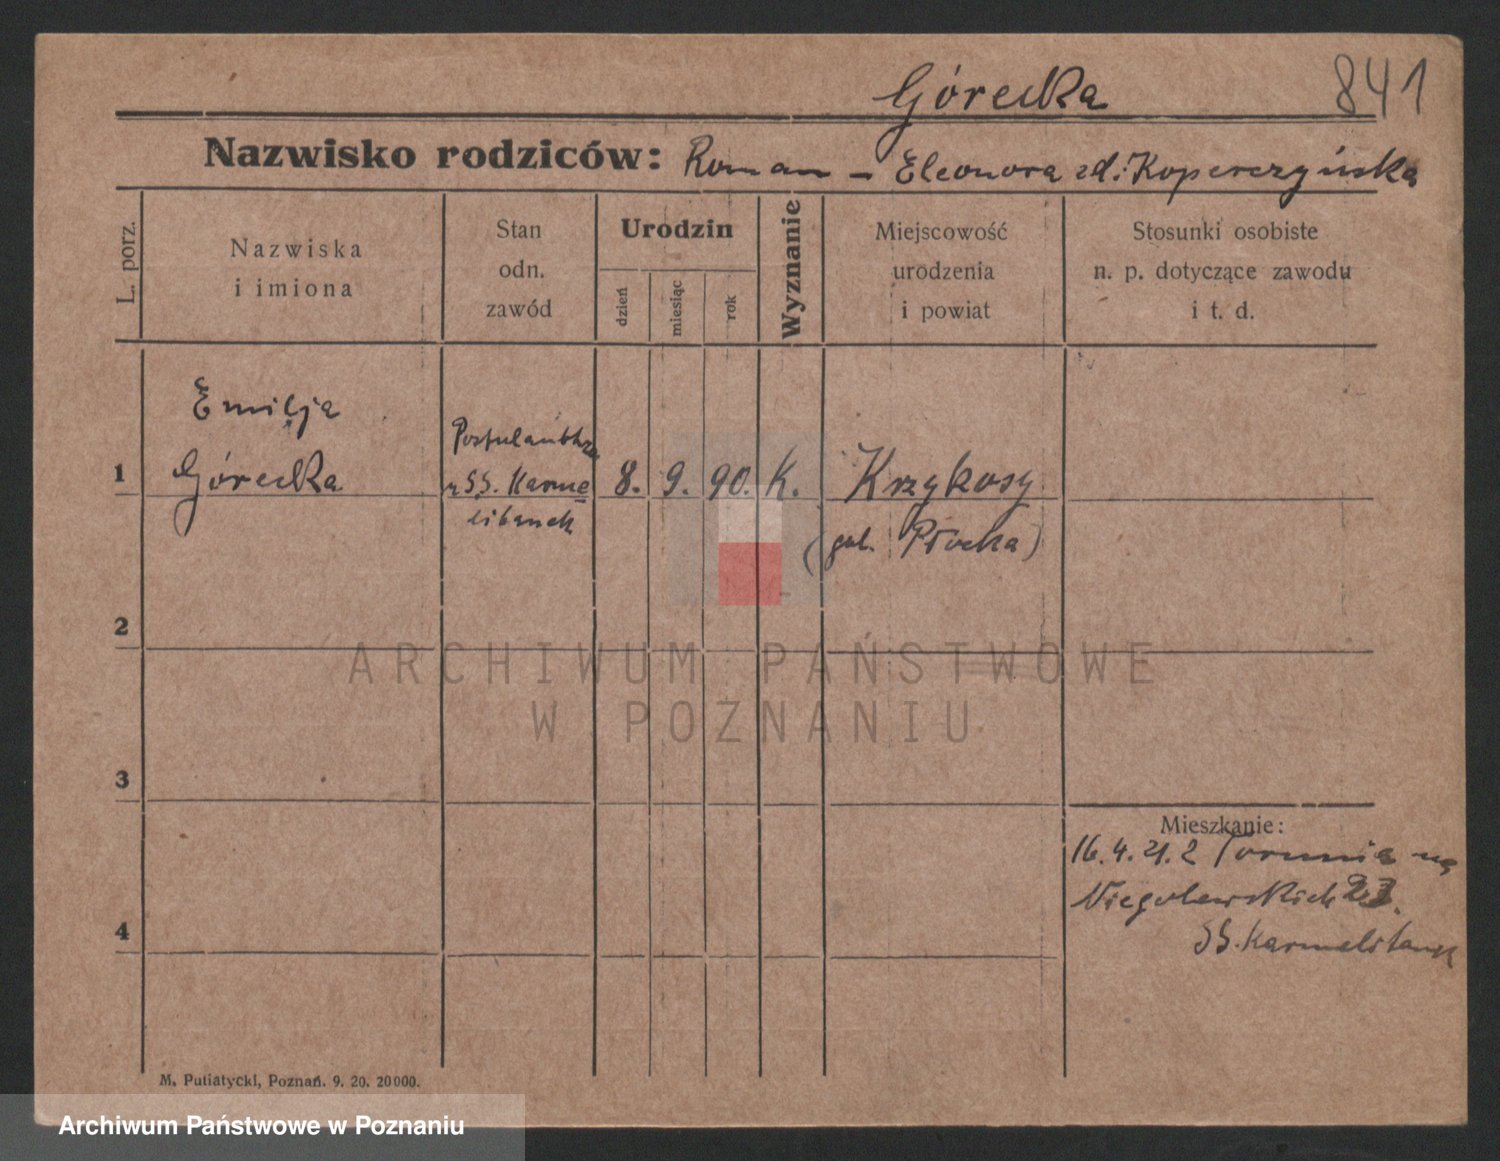 Górecka 841
Nazwisko rodziców: Roman – Eleonora zd. Koperczyńska
L. porz.
Nazwiska
i imiona
Stan
odn.
zawód
Urodzin
dzień
miesiąc
rok
Wyznanie
Miejscowość
urodzenia
i powiat
Stosunki osobiste
n. p. dotyczące zawodu
i t. d.
Emilja
1 Górecka
Postulantka
SS. Karme
litanek
8. 9. 90. K. Krzykosy
(gub. Płocka)
2
3
4
Mieszkanie:
16.4.21. z Torunia na
Niegolewskich 23.
SS. Karmelitanek
M. Putiatycki, Poznań. 9. 20. 20000.
ARCHIWUM PAŃSTWOWE
W POZNANIU
Archiwum Państwowe w Poznaniu